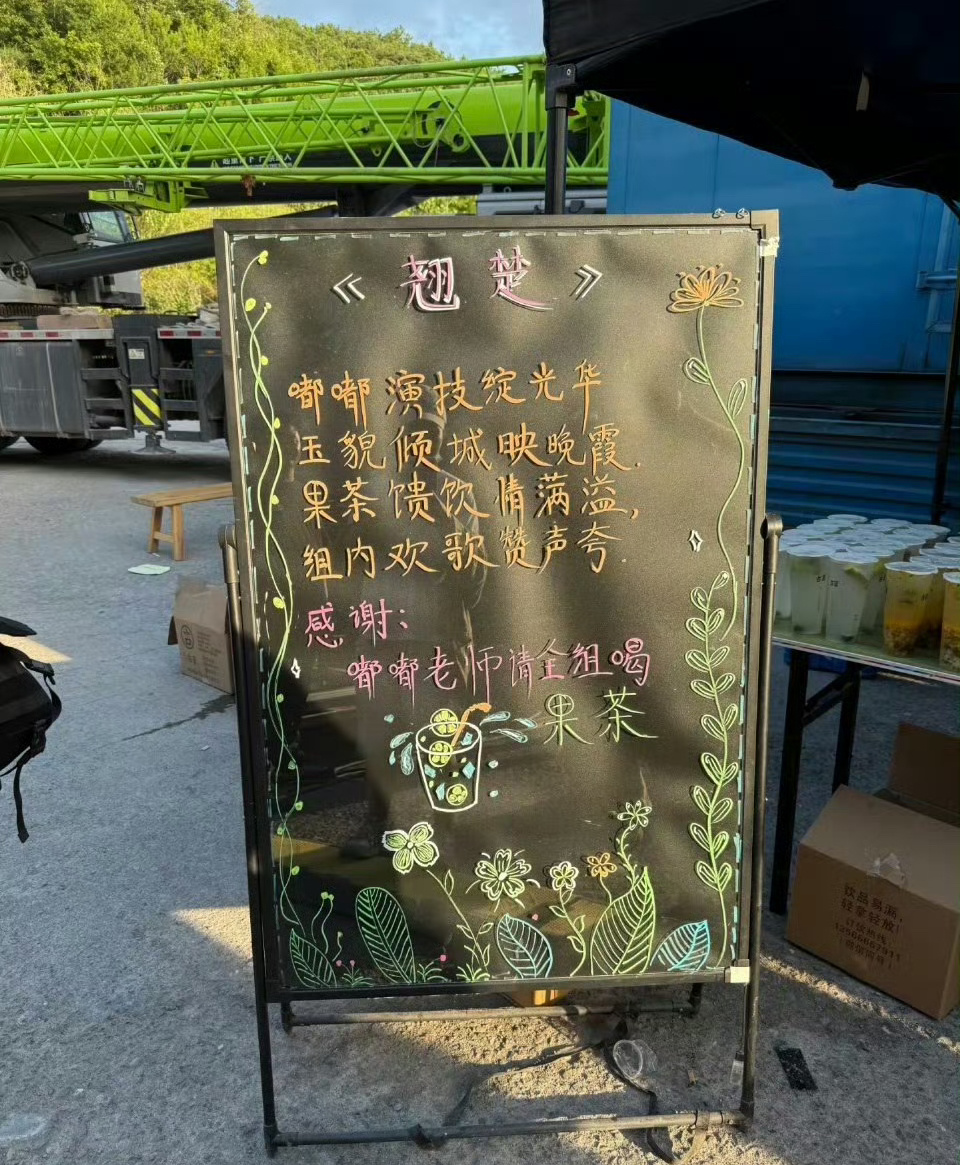 《翘楚》
嘟嘟演技绽光华
玉貌倾城映晚霞.
果茶馈饮情满溢,
组内欢歌赞声夸.
感谢:
嘟嘟老师请全组喝
果茶
饮品易漏,
轻拿轻放!